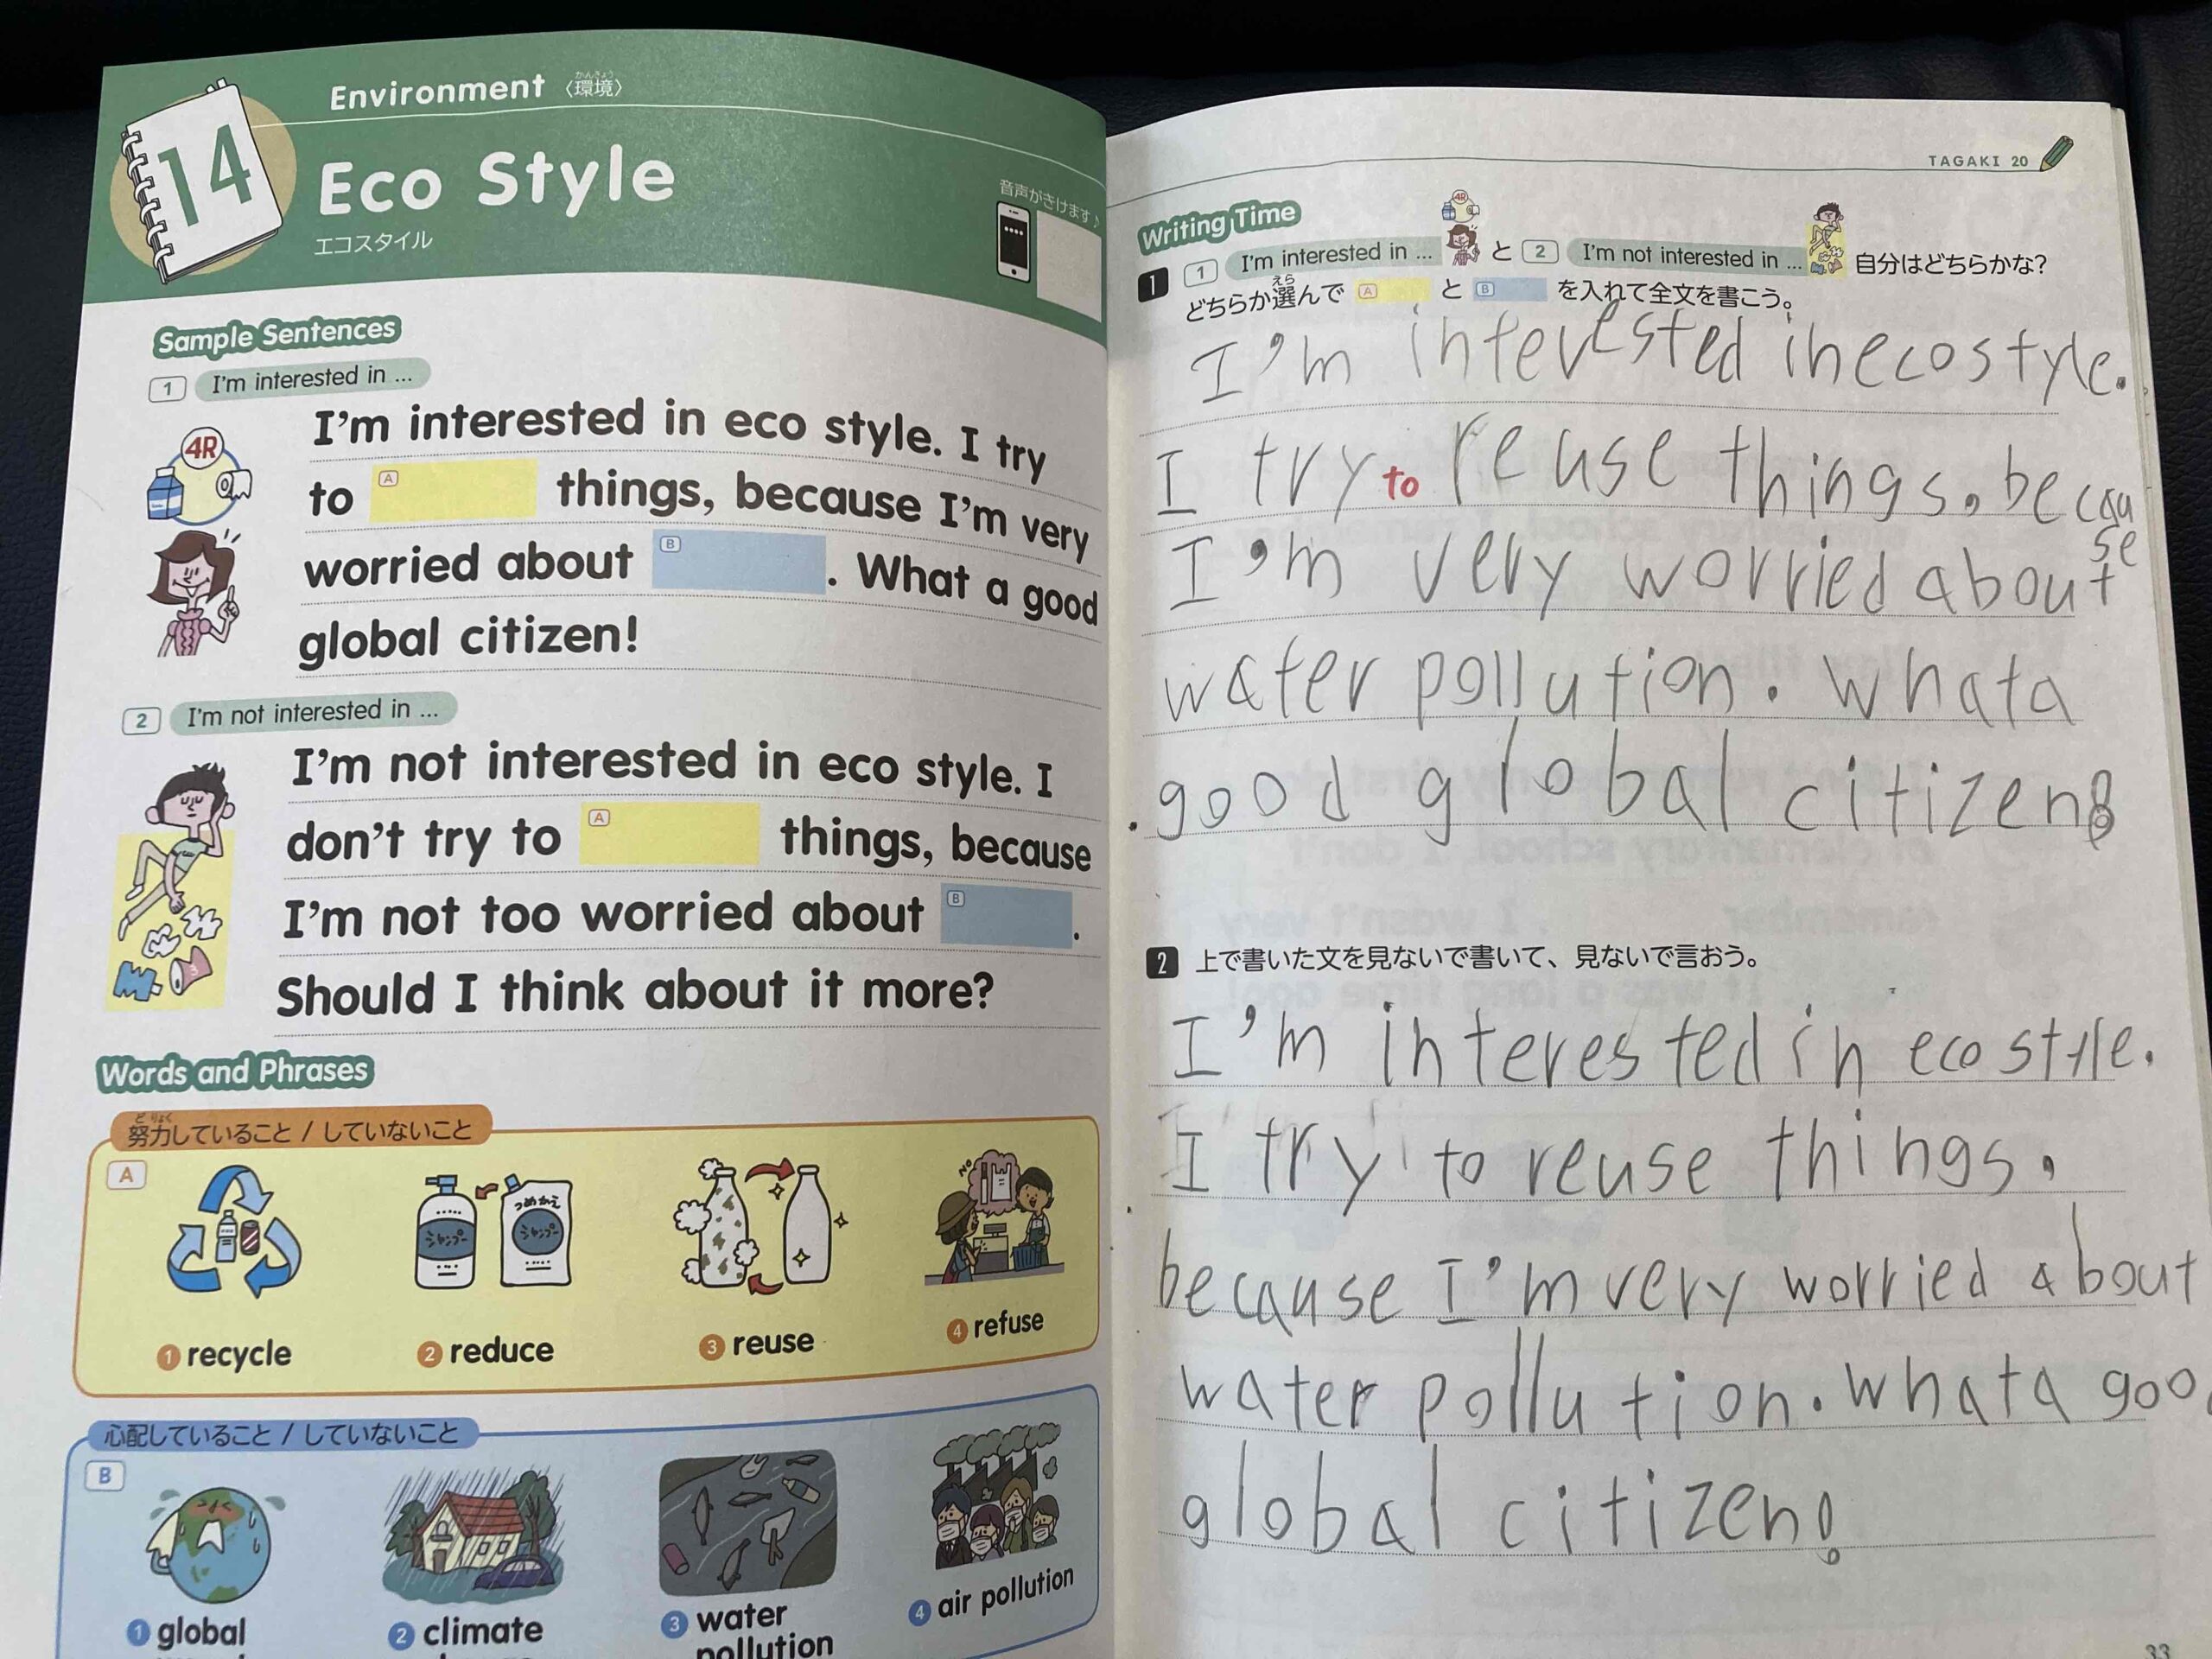 Environment 〈環境〉
かんきょう
14
Eco Style
エコスタイル
音声がきけます♪
Sample Sentences
1 I'm interested in ...
4R
I'm interested in eco style. I try
to A things, because I'm very
worried about B . What a good
global citizen!
2 I'm not interested in ...
I'm not interested in eco style. I
don't try to A things, because
I'm not too worried about B .
Should I think about it more?
Words and Phrases
どりょく
努力していること / していないこと
A
シャンプー
つめかえ
シャンプー
NO
1 recycle
2 reduce
3 reuse
4 refuse
心配していること / していないこと
B
1 global
2 climate
3 water
pollution
4 air pollution
TAGAKI 20
Writing Time
4R
1 1 I'm interested in ... と 2 I'm not interested in ... 自分はどちらかな?
えら
どちらか選んで A と B を入れて全文を書こう。
I'm interested in eco style.
I try to reuse things, becau
se
I'm very worried about
water pollution. What a
good global citizen!
2 上で書いた文を見ないで書いて、見ないで言おう。
I'm interested in eco style.
I try to reuse things,
because I'm very worried about
water pollution. What a goo
global citizen!
33